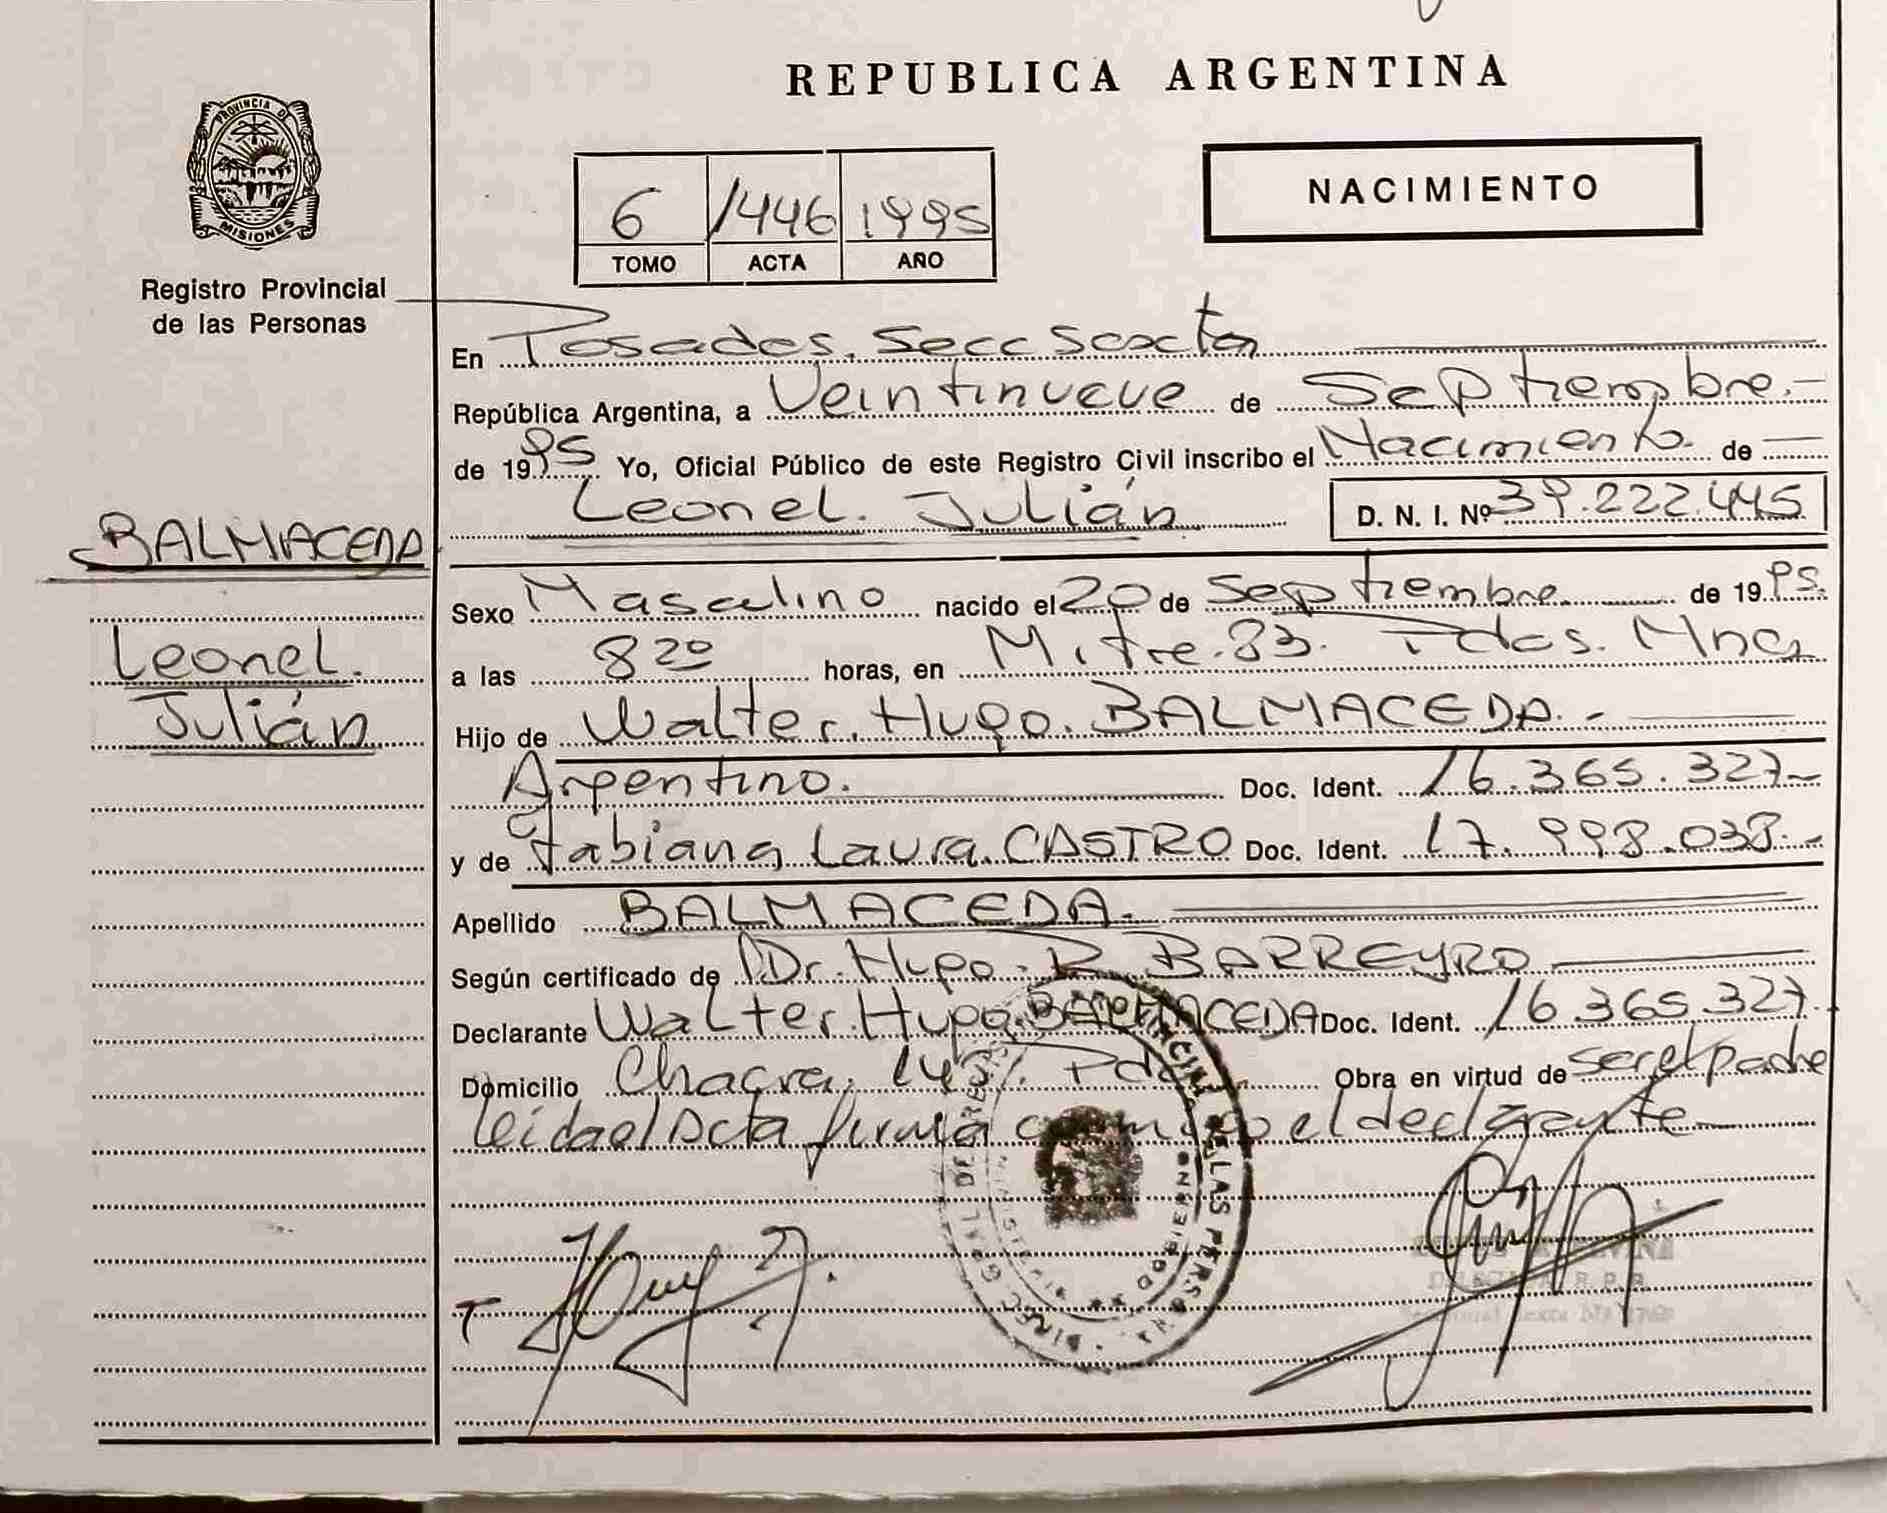 REPUBLICA ARGENTINA
PROVINCIA DE MISIONES
Registro Provincial
de las Personas
NACIMIENTO
6 1446 1995
TOMO ACTA AÑO
En Posadas. Secc Sexta
República Argentina, a Veintinueve de Septiembre.-
de 1995 Yo, Oficial Público de este Registro Civil inscribo el Nacimiento. de
Leonel. Julián D. N. I. Nº 39.222.445
BALMACEDA
Leonel.
Julián
Sexo Masculino nacido el 20 de Septiembre de 1995.
a las 8 20 horas, en Mitre. 83. Pdas. Mnes
Hijo de Walter. Hugo. BALMACEDA.-
Argentino. Doc. Ident. 16.365.327-
y de Fabiana Laura. CASTRO Doc. Ident. 17.998.038.-
Apellido BALMACEDA.
Según certificado de Dr. Hugo. R. BARREYRO
Declarante Walter. Hugo. BALMACEDA Doc. Ident. 16.365.327.
Domicilio Chacra. 145/. Pdas Obra en virtud de ser el padre
leida el Acta firma conmigo el declarante
DE LAS PERSONAS